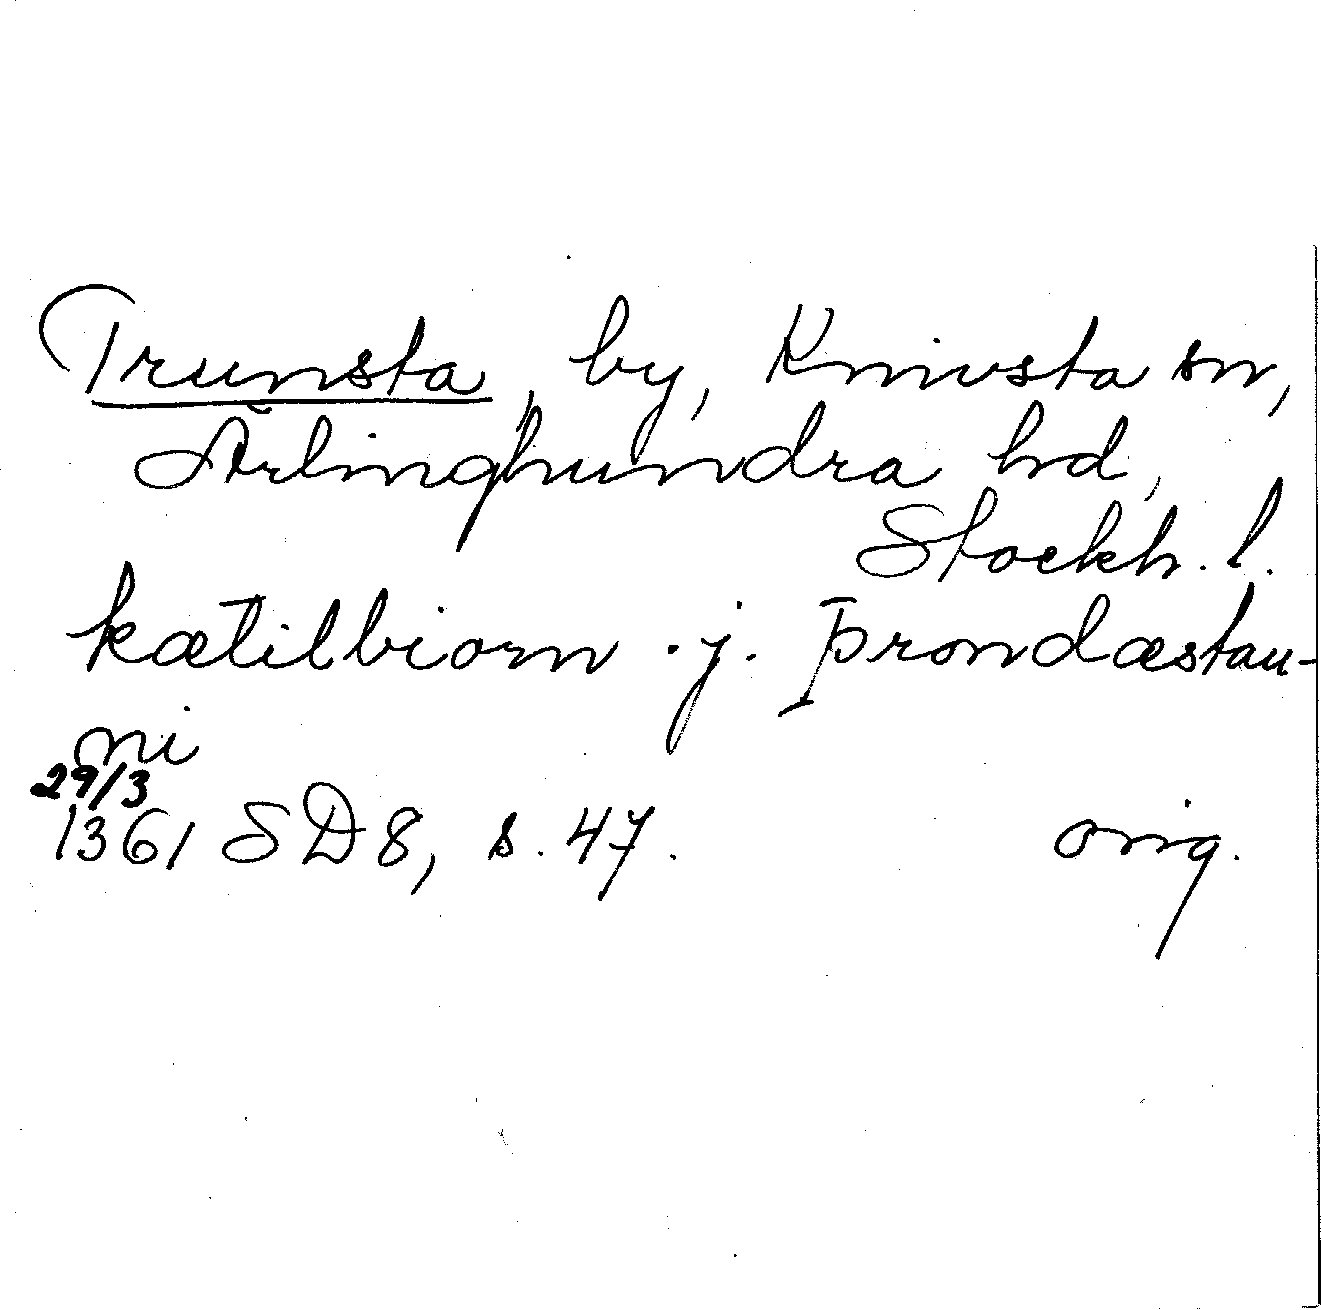 Trunsta, by, Knivsta sn,
Ärlinghundra hd,
Stockh. l.
kætilbiorn .j. Þrondæstau-
ni
29/3
1361 SD8, s. 47. orig.